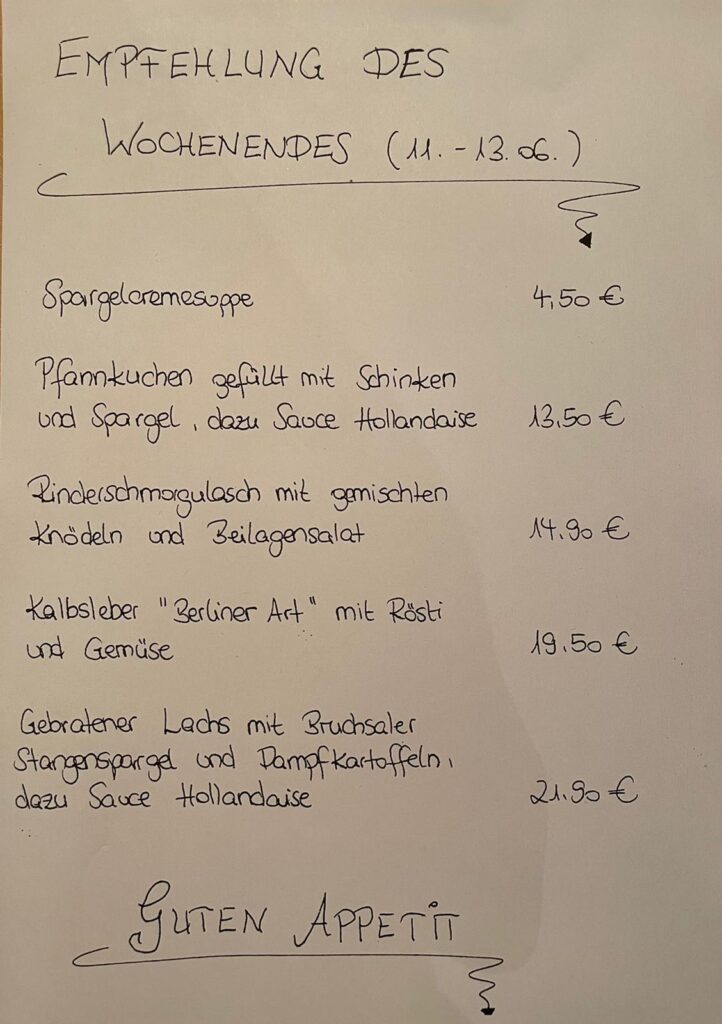 EMPFEHLUNG DES
WOCHENENDES (11. - 13. 06.)
Spargelcremesuppe 4,50 €
Pfannkuchen gefüllt mit Schinken
und Spargel, dazu Sauce Hollandaise 13,50 €
Rinderschmorgulasch mit gemischten
Knödeln und Beilagensalat 14.90 €
Kalbsleber "Berliner Art" mit Rösti
und Gemüse 19.50 €
Gebratener Lachs mit Bruchsaler
Stangenspargel und Dampfkartoffeln,
dazu Sauce Hollandaise 21.90 €
GUTEN APPETIT